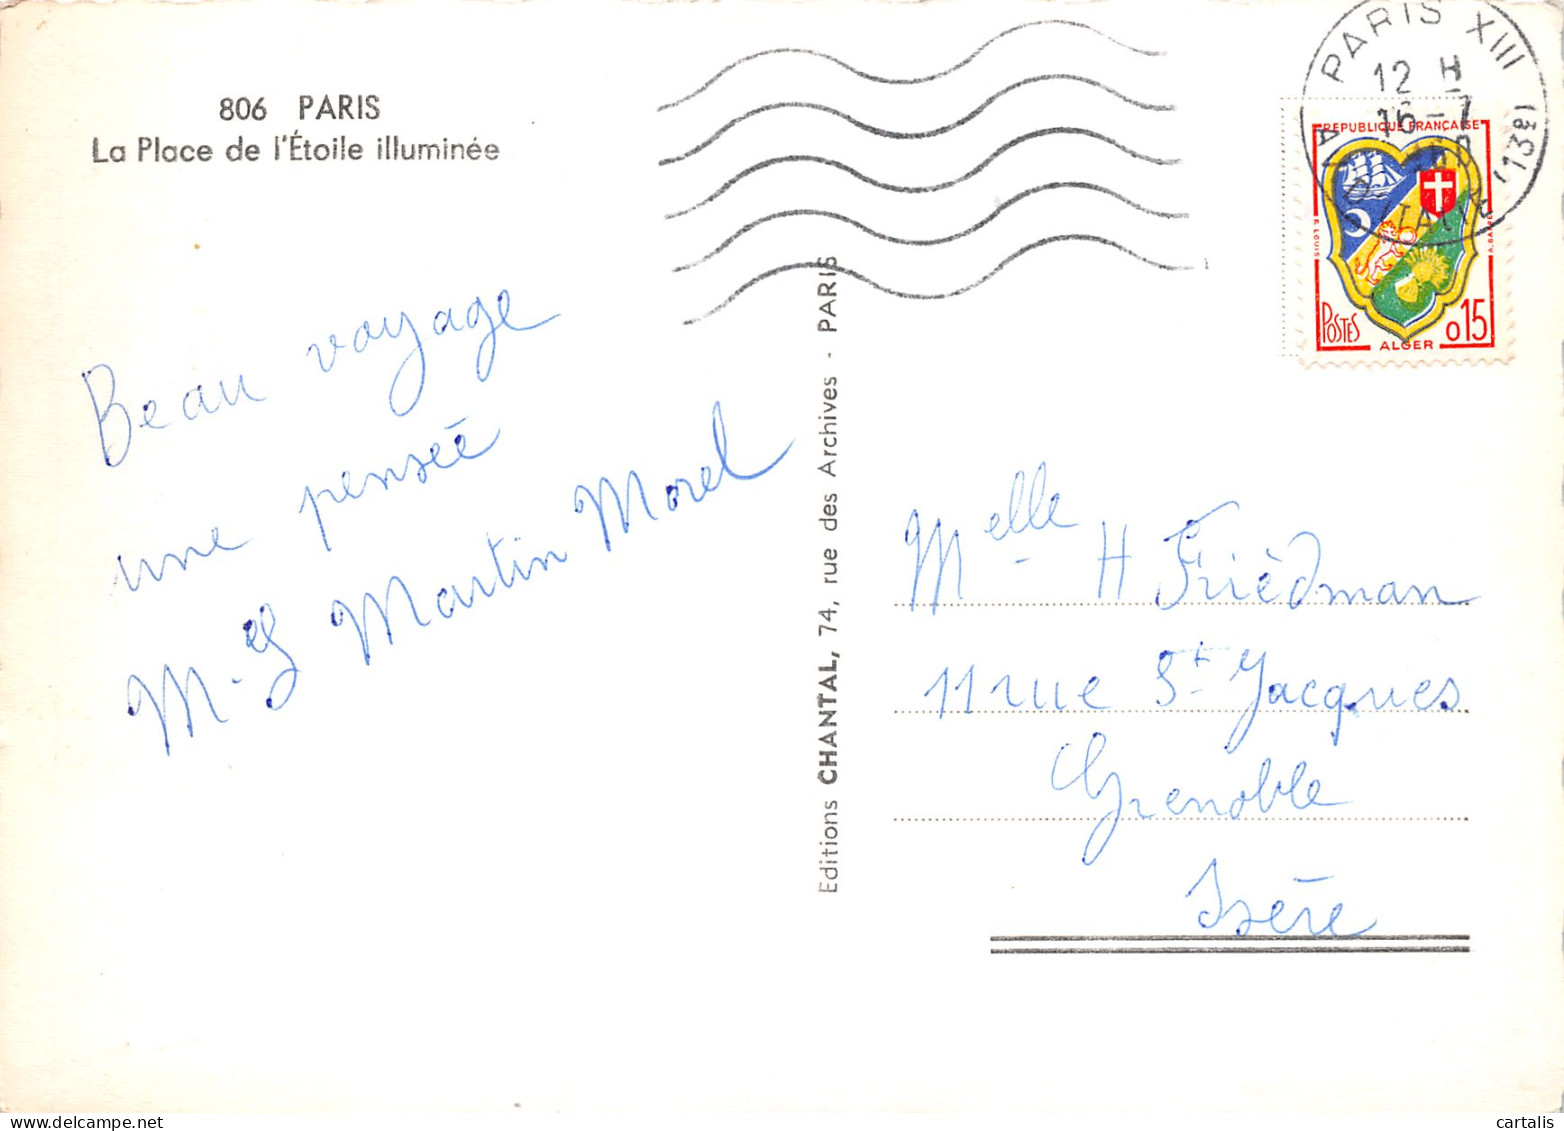 806 PARIS
La Place de l'Étoile illuminée
Beau voyage
une penseé
M. Martin Morel
Editions CHANTAL, 74, rue des Archives - PARIS
PARIS XIII
12 H
16-7
REPUBLIQUE FRANÇAISE
POSTES
ALGER
0,15
Melle H Frièdman
11 rue St Jacques
Grenoble
Isère
cartalis